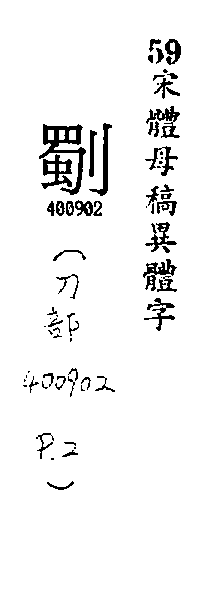 59宋體母稿異體字
㔉
400902
(刀部
400902
P.2
)